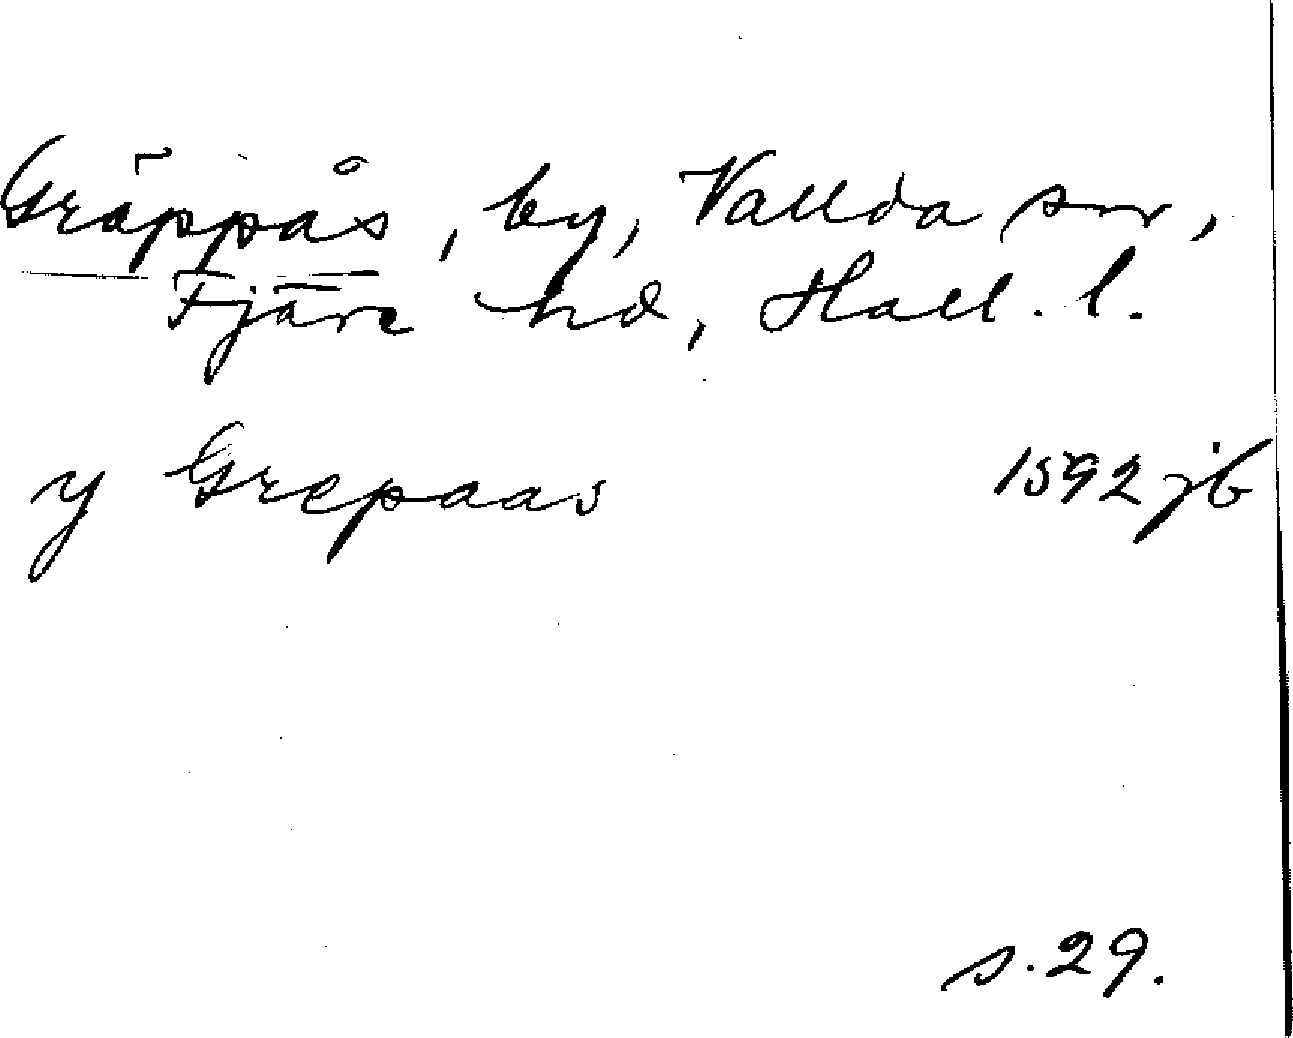 Gräppås, by, Vallda sn,
Fjäre hd, Hall. l.
y Grepaas 1592 jb
s. 29.